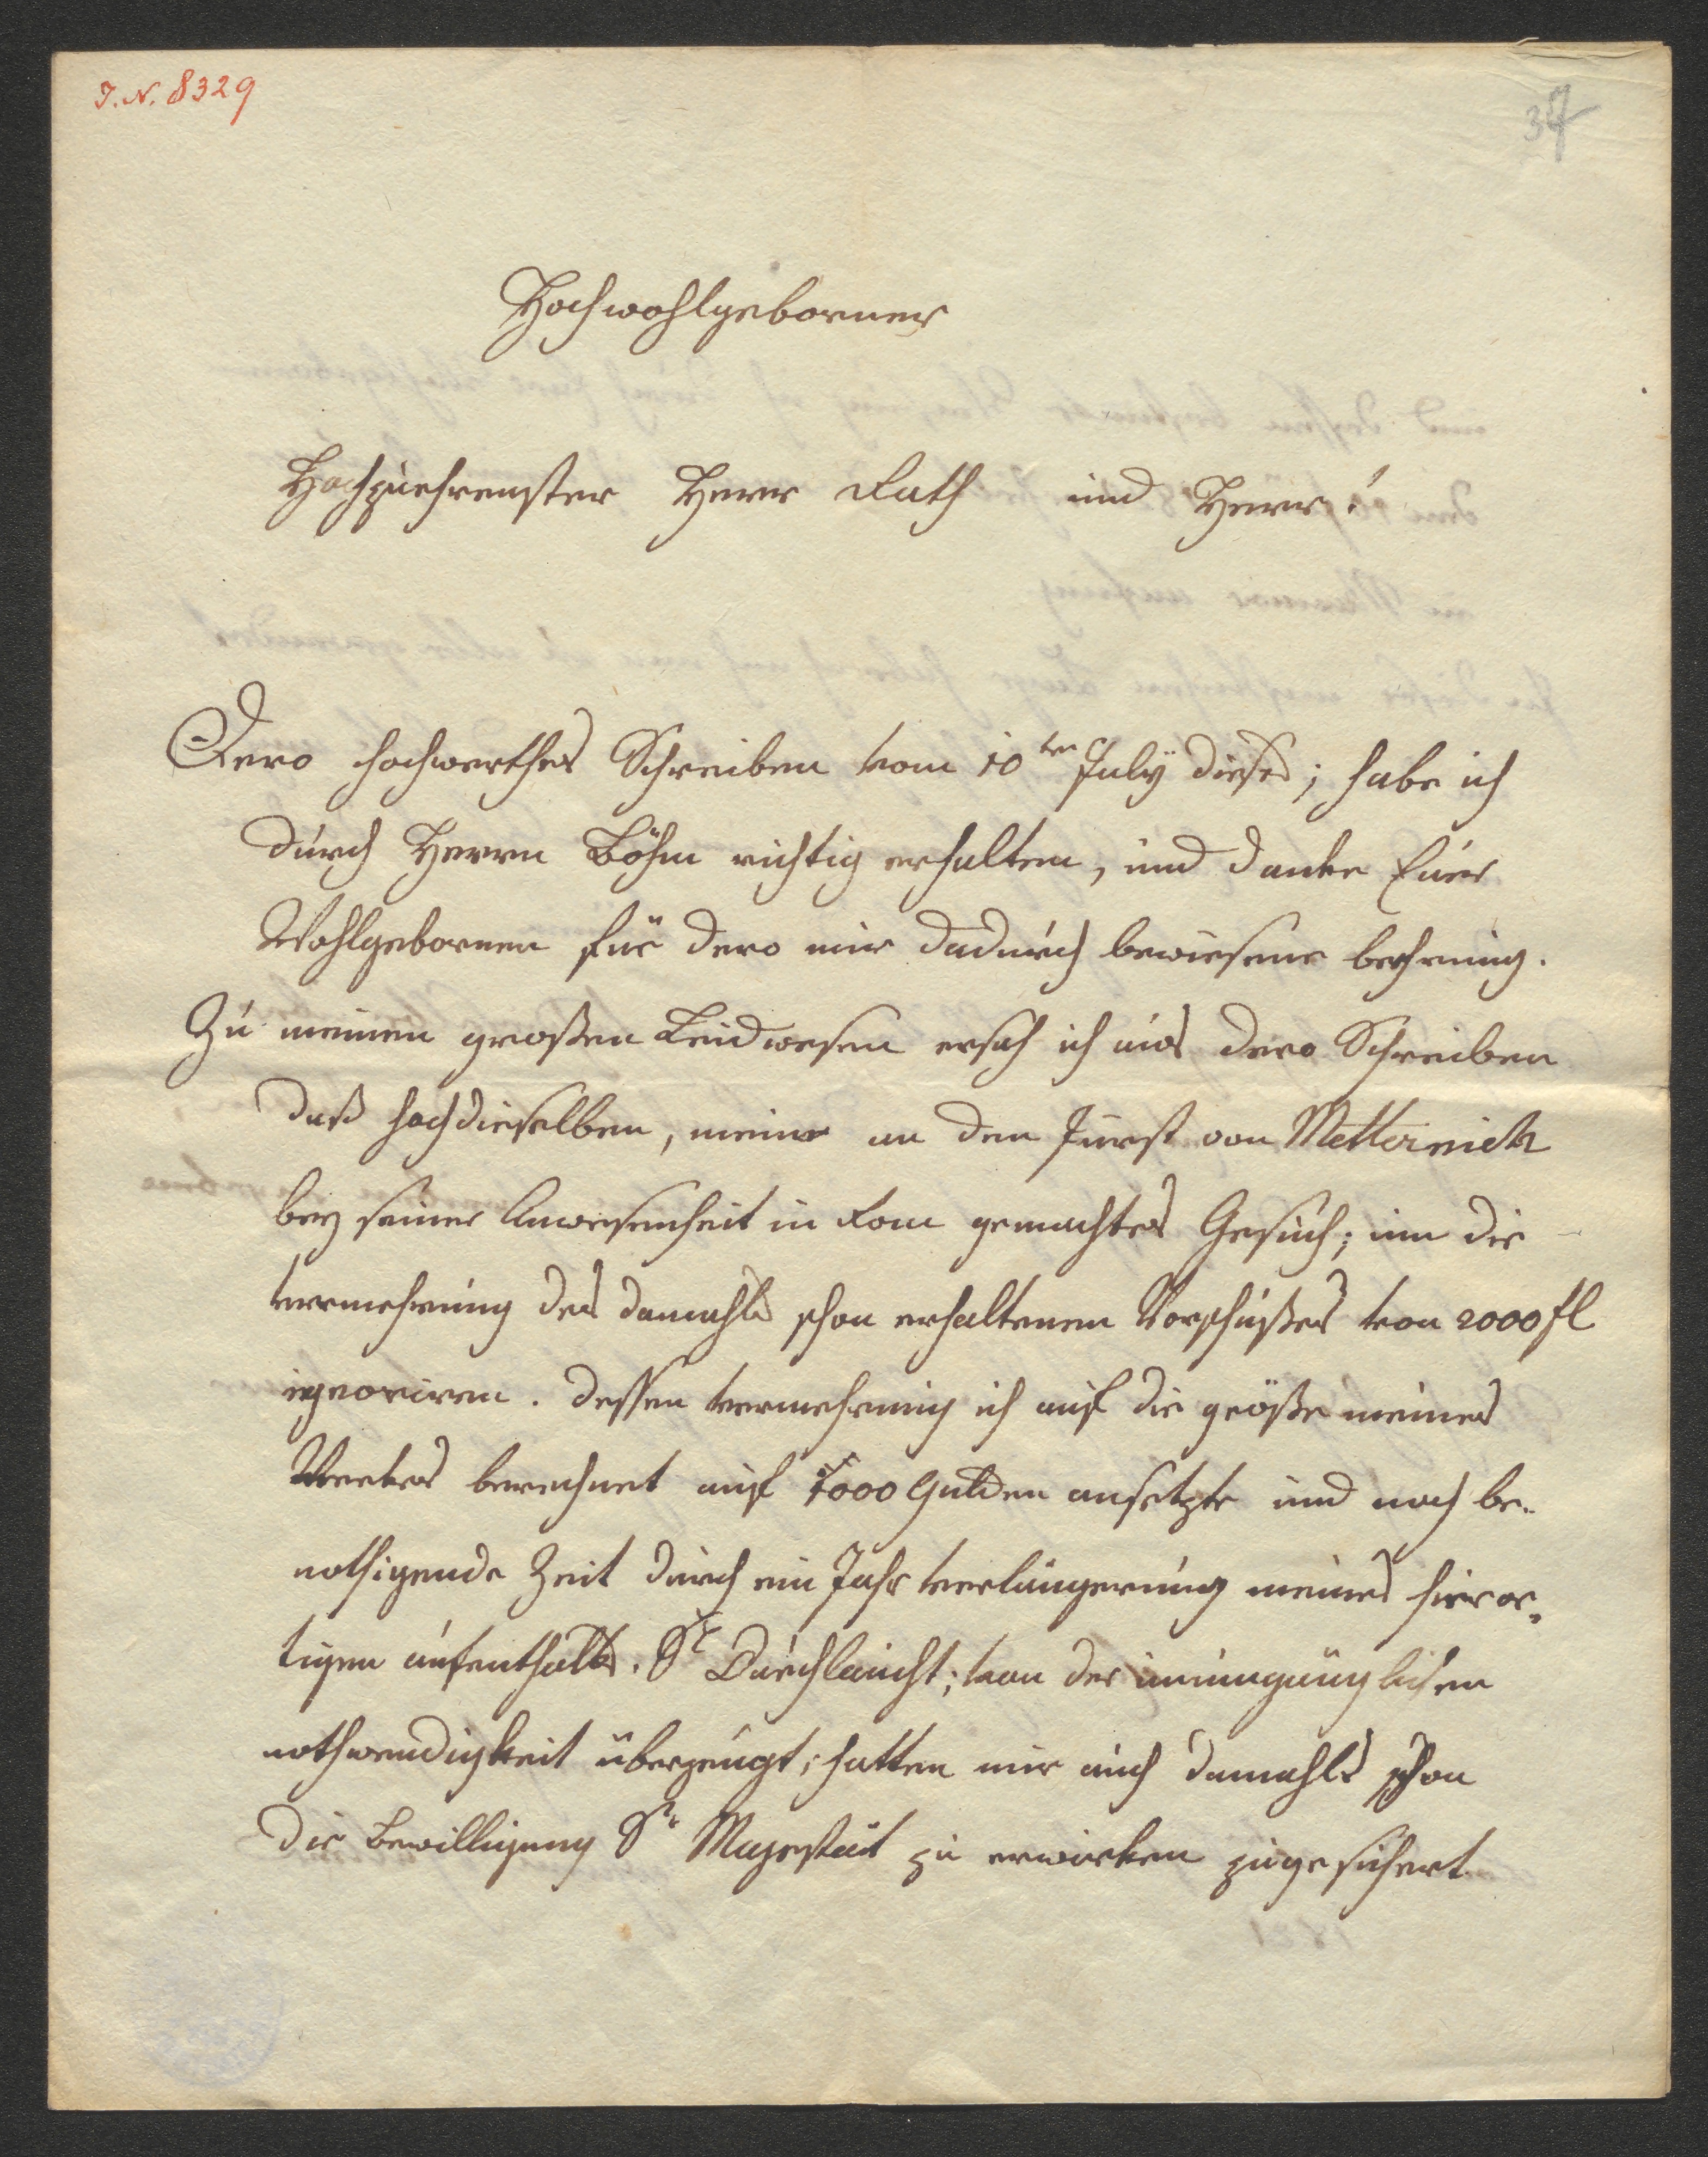 I.N. 8329
37
Hochwohlgeborner
Hochzuehrenster Herr Rath und Herr!
Dero hochwerthes Schreiben vom 10ten July dieses; habe ich
durch Herrn Böhm richtig erhalten, und danke Euer
Wohlgebornen für dero mir dadurch bewiesene beehrung.
Zu meinen großen Leidwesen ersah ich aus dero Schreiben
daß hochdieselben, meine an den Fürst von Metternich
bey seiner Anwesenheit in Rom gemachtes Gesuch; um die
vermehrung des damahls schon erhaltenen Vorschußes von 2000 fl
ignoriren. dessen vermehrung ich auf die größe meines
Werkes berechnet auf 4000 Gulden ansetzte und noch be-
nothigende Zeit durch ein Jahr verlängerung meines hieror-
tigen aufenthalts. Sr Durchlaucht; von der unumgänglichen
nothwendigkeit überzeugt; hatten mir auch damahls schon
die Bewilligung Sr Majestaät zu erwirken zugesichert